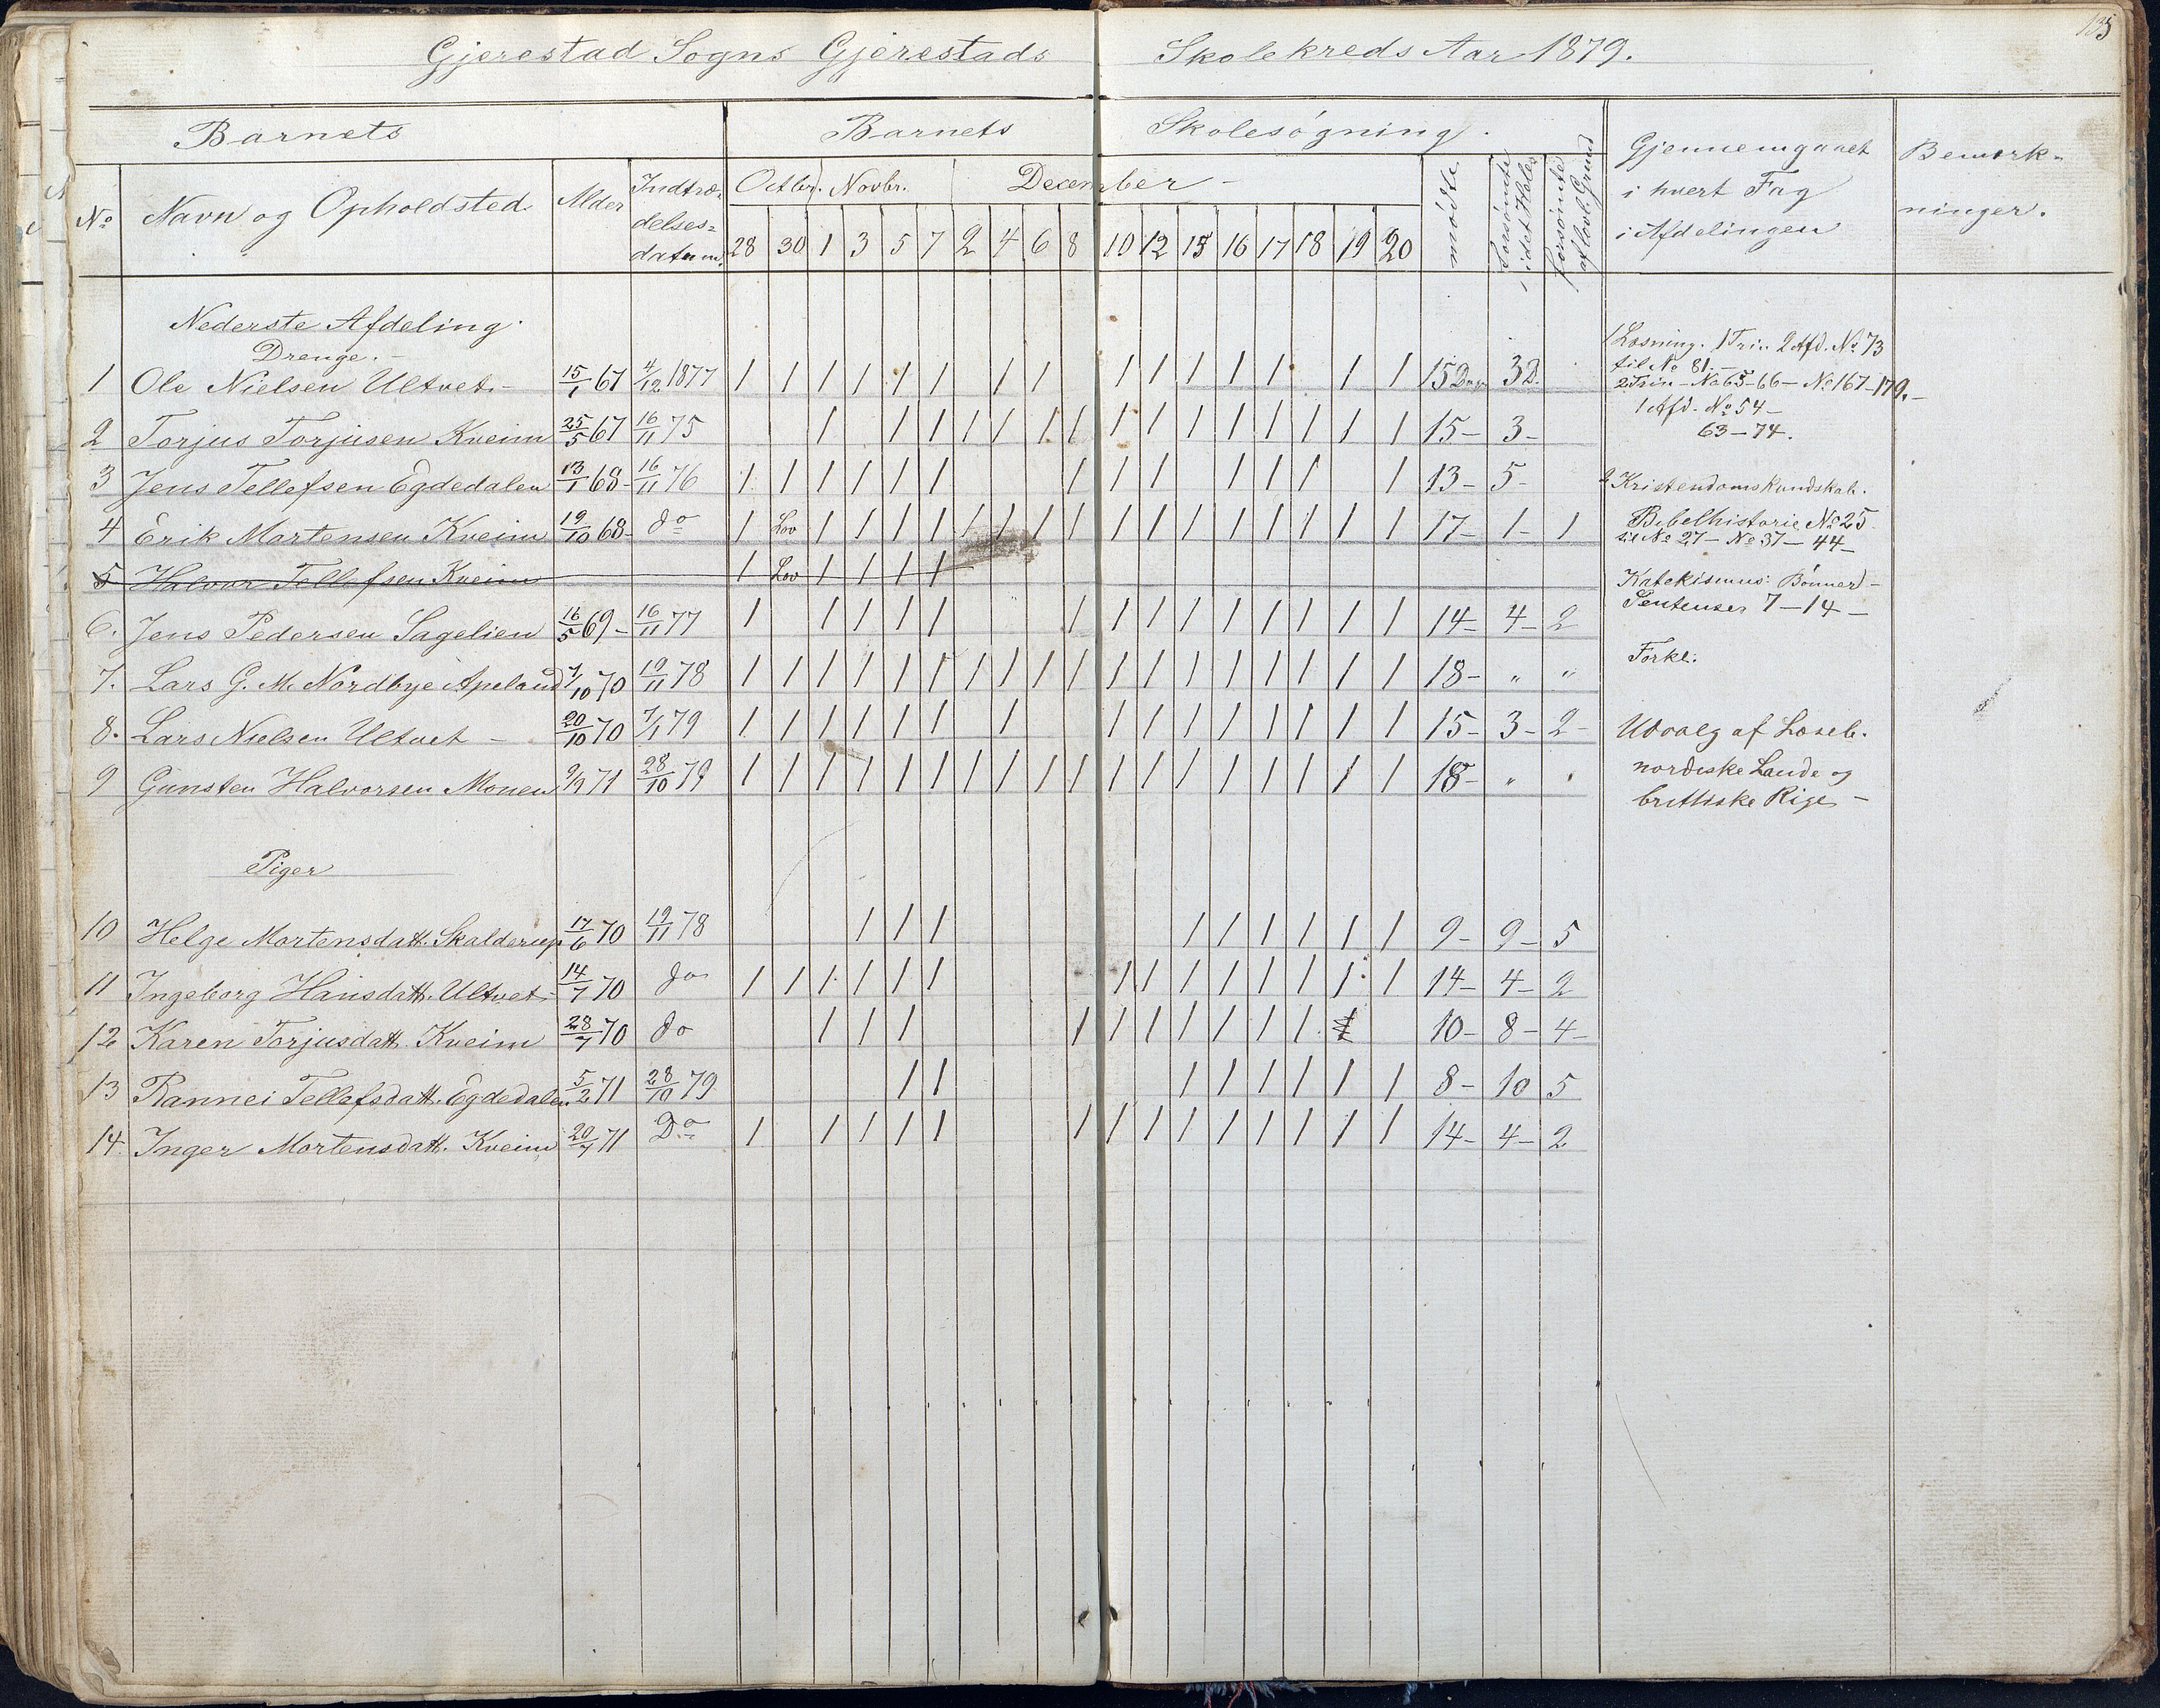 135
Gjerestad Sogns Gjerestads Skolekreds Aar 1879.
Barnets Barnets Skolesøgning. Gjennemgaaet i hvert Fag i Afdelingen Bemærkninger.
No Navn og Opholdsted Alder Indtrædelsesdatum. Octbr. Novbr. December - mødte forsømte i det Hele forsømte af lovl. Grund
28 30 1 3 5 7 2 4 6 8 10 12 15 16 17 18 19 20
Nederste Afdeling.
Drenge. -
1 Ole Nielsen Ultvet - 15/1 67 4/12 1877 1 1 1 1 1 1 1 1 1 1 1 1 1 1 1 15 Dage 3 D.
2 Torjus Torjusen Kveim 25/5 67 16/11 75 1 1 1 1 1 1 1 1 1 1 1 1 1 1 1 15 - 3 -
3 Jens Tellefsen Egdedalen 13/1 68 - 16/11 76 1 1 1 1 1 1 1 1 1 1 1 1 1 13 - 5 -
4 Erik Mortensen Kveim 19/10 68 - do 1 Lov 1 1 1 1 1 1 1 1 1 1 1 1 1 1 1 1 17 - 1 - 1
5 Halvor Tellefsen Kveim 1 Lov 1 1 1 1
6. Jens Pedersen Sagelien 16/5 69 - 16/11 77 1 1 1 1 1 1 1 1 1 1 1 1 1 1 14 - 4 - 2
7. Lars G. M. Nordbye Apeland 7/10 70 19/11 78 1 1 1 1 1 1 1 1 1 1 1 1 1 1 1 1 1 1 18 - " "
8. Lars Nielsen Ultvet - 20/10 70 7/1 79 1 1 1 1 1 1 1 1 1 1 1 1 1 1 1 15 - 3 - 2 -
9 Gunsten Halvorsen Monen 9/9 71 28/10 79 1 1 1 1 1 1 1 1 1 1 1 1 1 1 1 1 1 1 18 - " "
Piger
10 Helge Mortensdatt. Skalderup 17/6 70 19/11 78 1 1 1 1 1 1 1 1 1 9 - 9 - 5
11 Ingeborg Hansdatt. Ultvet 14/7 70 do 1 1 1 1 1 1 1 1 1 1 1 1 1 1 14 - 4 - 2
12 Karen Torjusdatt. Kveim 28/7 70 do 1 1 1 1 1 1 1 1 1 1 10 - 8 - 4 -
13 Rannei Tellefsdatt. Egdedalen 5/2 71 28/10 79 1 1 1 1 1 1 1 1 8 - 10 5
14. Inger Mortensdatt. Kveim 20/7 71 Do 1 1 1 1 1 1 1 1 1 1 1 1 1 1 14 - 4 - 2
1 Læsning. 1 Trin. 2 Afd. No 73
til No 81. -
2 Trin - No 65-66 - No 167-179. -
1 Afd. No 54 -
63 - 74.
2 Kristendomskundskab.
Bibelhistorie No 25
til No 27 - No 37 - 44 -
Katekismus: Bønner -
Sentenser 7 - 14 -
Forkl.
Udvalg af Læseb.
nordiske Lande og
brittiske Rige -